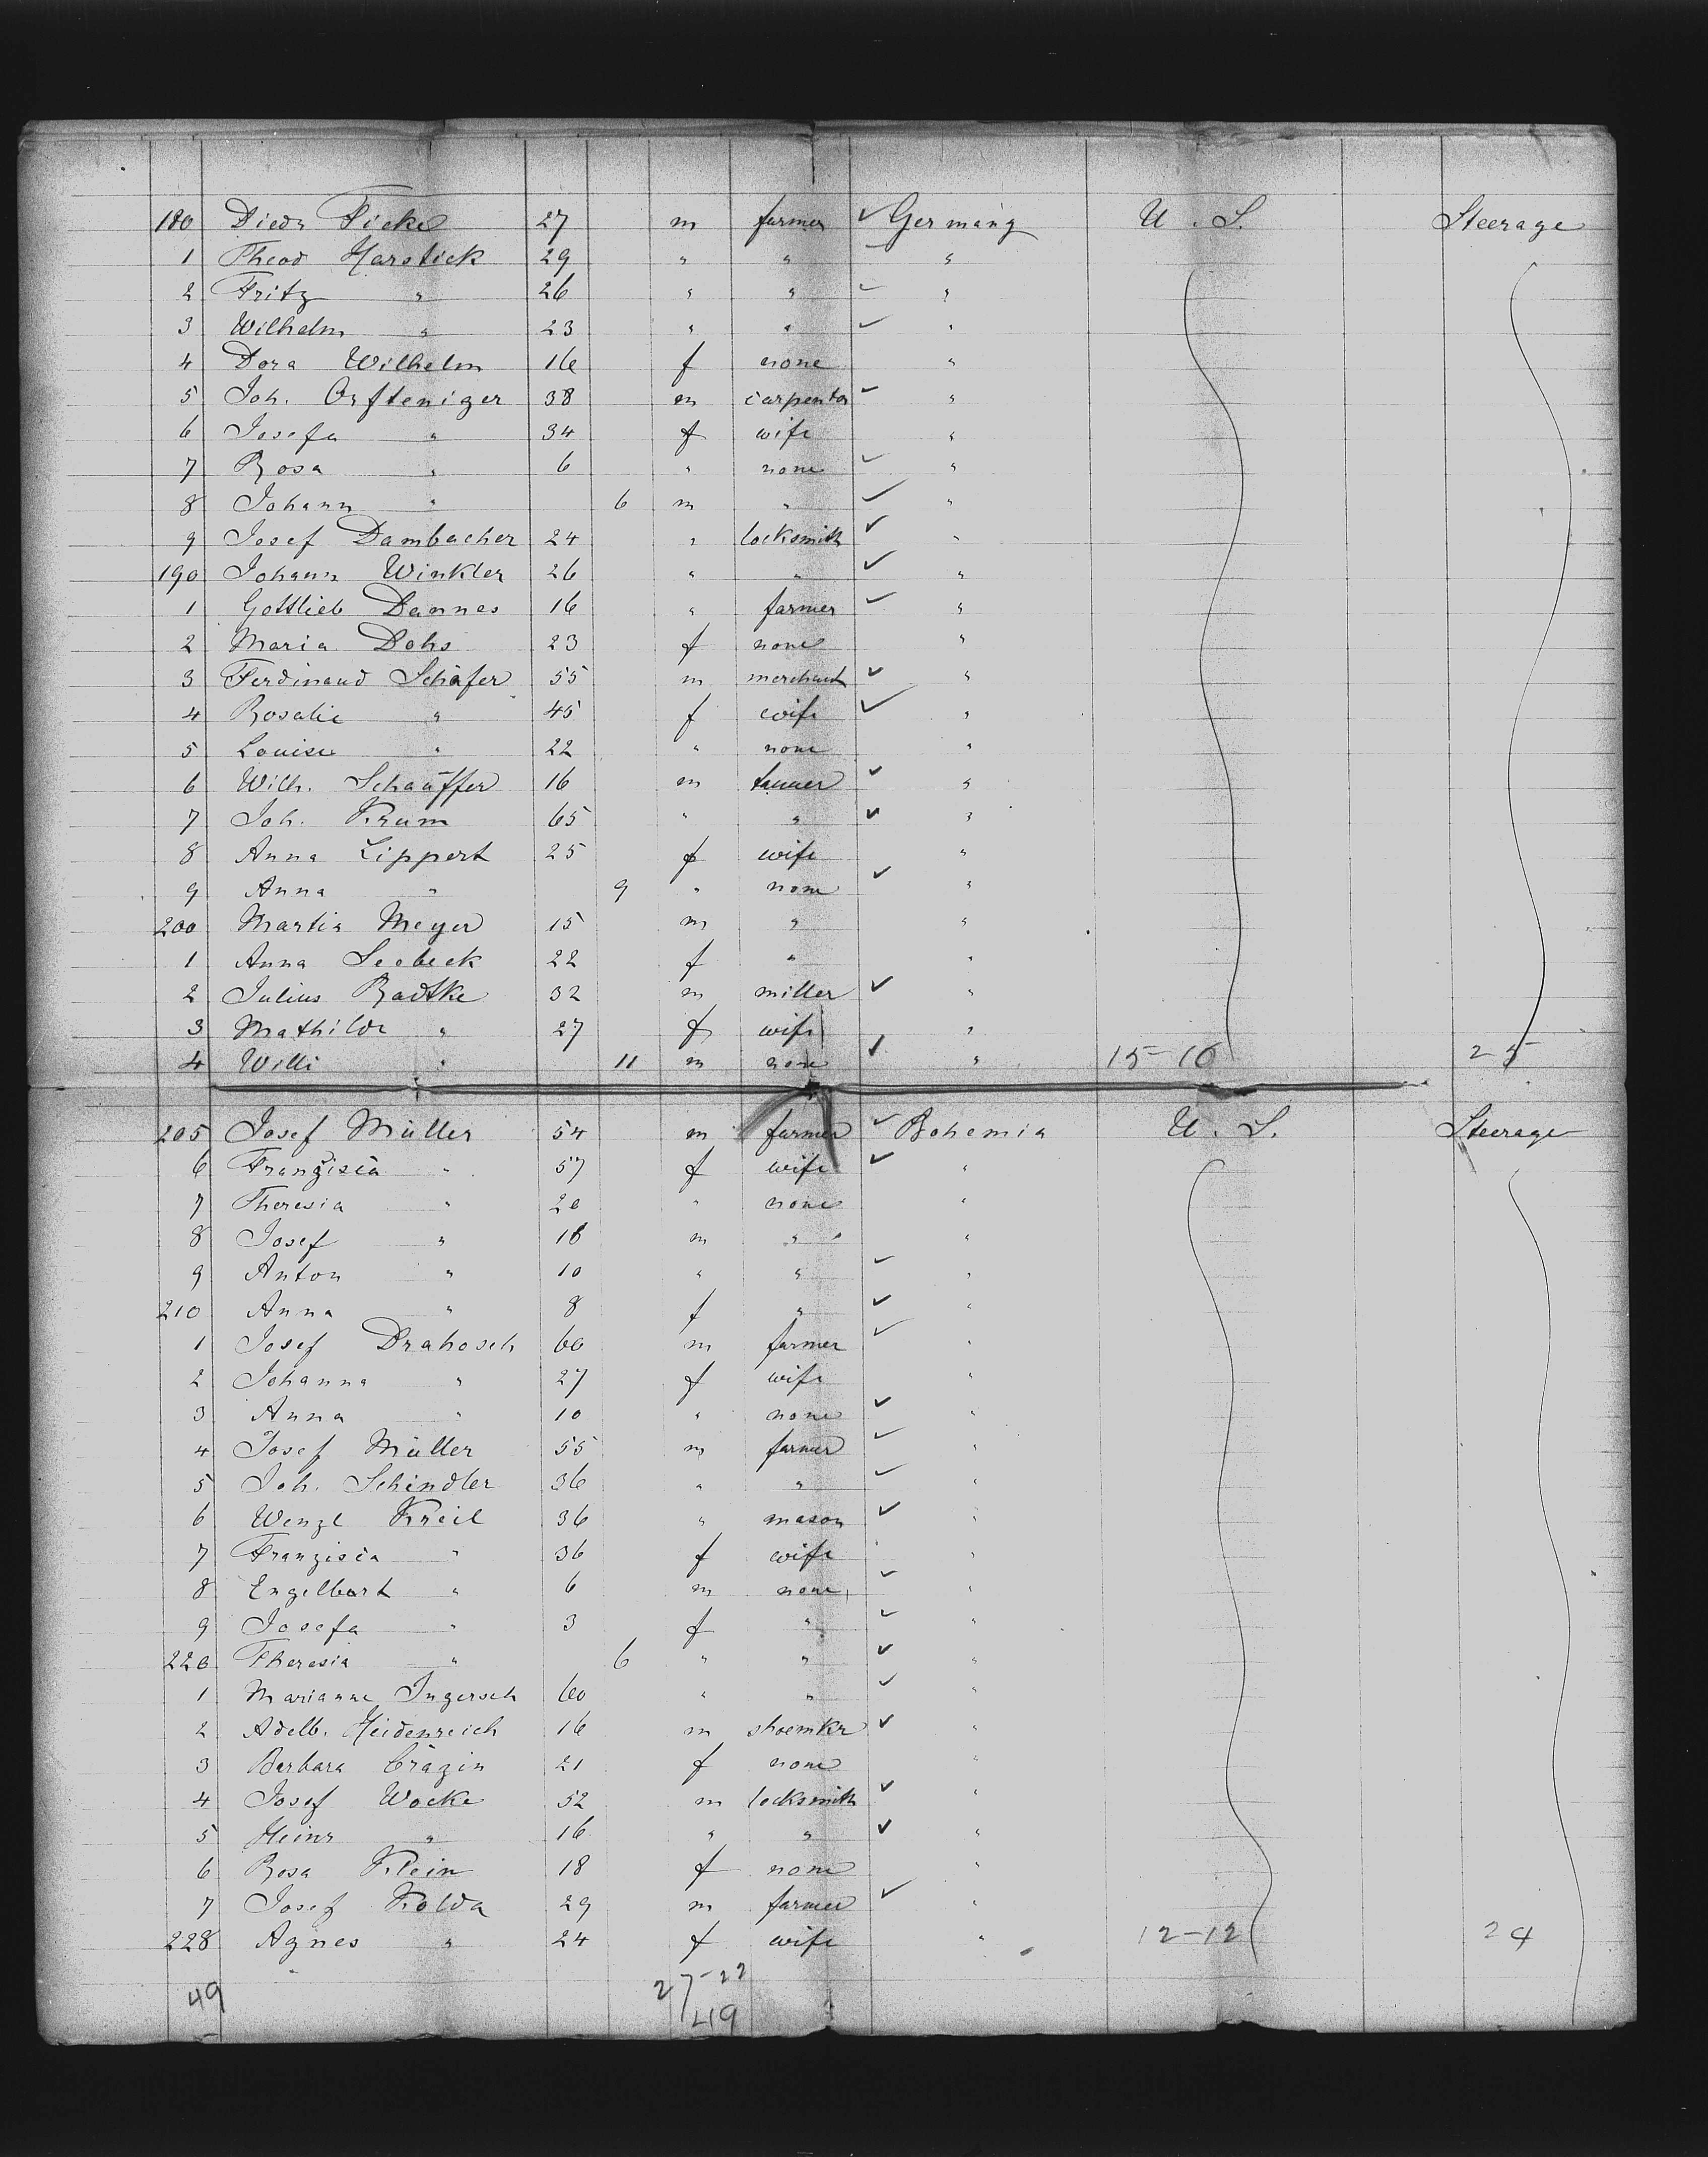 180 Diedr Ficke 27 m farmer ✓ Germany U. S. Steerage
1 Theod Harstick 29 " " ✓ "
2 Fritz " 26 " " ✓ "
3 Wilhelm " 23 " " ✓ "
4 Dora Wilhelm 16 f none "
5 Joh. 38 m carpenter ✓ "
6 Josefa " 34 f wife "
7 Rosa " 6 " none ✓ "
8 Johann " 6 m " ✓ "
9 Josef Dambacher 24 " locksmith ✓ "
190 Johann Winkler 26 " " ✓ "
1 Gottlieb Dannes 16 " farmer ✓ "
2 Maria Dohs 23 f none "
3 Ferdinand Schäfer 55 m merchant ✓ "
4 Rosalie " 45 f wife ✓ "
5 Louise " 22 " none "
6 Wilh. Schäuffer 16 m tanner ✓ "
7 Joh. Krum 65 " " ✓ "
8 Anna Lippert 25 f wife "
9 Anna " 9 " none ✓ "
200 Martin Meyer 15 m " "
1 Anna Seebeck 22 f " "
2 Julius Radtke 32 m miller ✓ "
3 Mathilde " 27 f wife "
4 Willi " 11 m none ✓ " 15-10 25
205 Josef Müller 54 m farmer ✓ Bohemia U. S. Steerage
6 Franzisca " 57 f wife ✓ "
7 Theresia " 20 " none "
8 Josef " 16 m " "
9 Anton " 10 " " ✓ "
210 Anna " 8 f " ✓ "
1 Josef Drahosch 60 m farmer ✓ "
2 Johanna " 27 f wife "
3 Anna " 10 " none ✓ "
4 Josef Müller 55 m farmer ✓ "
5 Joh. Schindler 36 " " ✓ "
6 Wenzl Kreil 36 " mason ✓ "
7 Franzisca " 36 f wife "
8 Engelbert " 6 m none ✓ "
9 Josefa " 3 f " ✓ "
220 Theresia " 6 " " ✓ "
1 Marianne Ingersch 60 " " ✓ "
2 Adelb. Heidenreich 16 m shoemkr ✓ "
3 Barbara 21 f none "
4 Josef Wocke 52 m locksmith ✓ "
5 Heinr " 16 " " ✓ "
6 Rosa Klein 18 f none "
7 Josef Kolda 29 m farmer ✓ "
228 Agnes " 24 f wife " 12-12 24
49 27-22
49